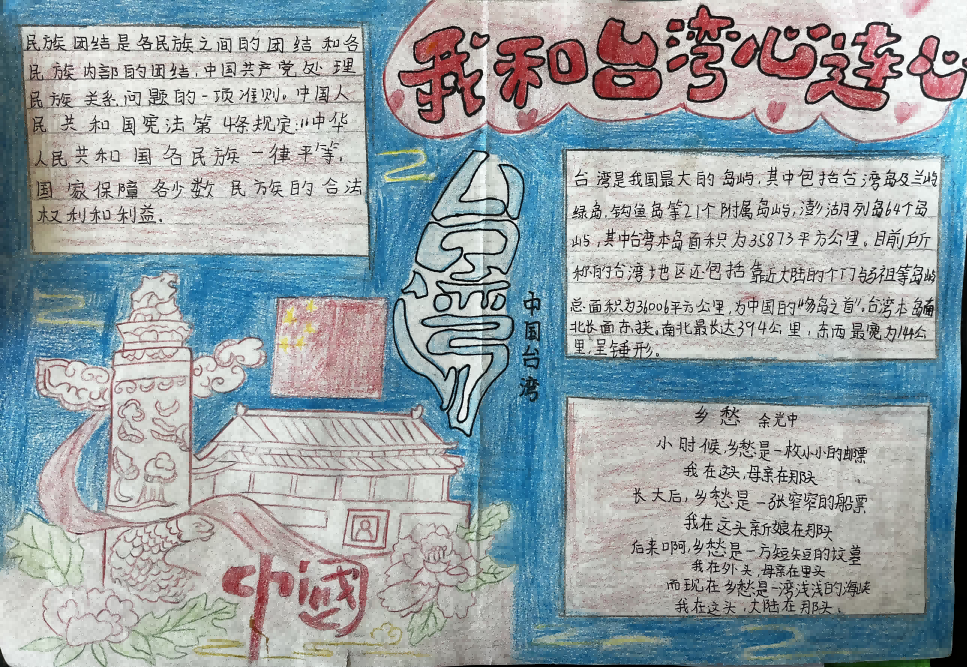 我和台湾心连心
民族团结是各民族之间的团结和各
民族内部的团结,中国共产党处理
民族关系问题的一项准则。中国人
民共和国宪法第4条规定:"中华
人民共和国各民族一律平等.
国家保障各少数民族的合法
权利和利益.
台湾
中国台湾
台湾是我国最大的岛屿,其中包括台湾岛及兰屿
绿岛.钓鱼岛等21个附属岛屿,澎湖列岛64个岛
屿,其中台湾本岛面积为35873平方公里。目前所
称的台湾地区还包括靠近大陆的个门妈祖等岛屿
总面积为36006平方公里,为中国的"岛之首".台湾本岛南
北长而东狭.南北最长达394公里,东西最宽为144公
里,呈锤形。
乡愁 余光中
小时候,乡愁是一枚小小的邮票
我在这头,母亲在那头
长大后,乡愁是一张窄窄的船票
我在这头新娘在那头
后来啊,乡愁是一方矮矮的坟墓
我在外头,母亲在里头
而现在乡愁是一湾浅浅的海峡
我在这头,大陆在那头.
中国